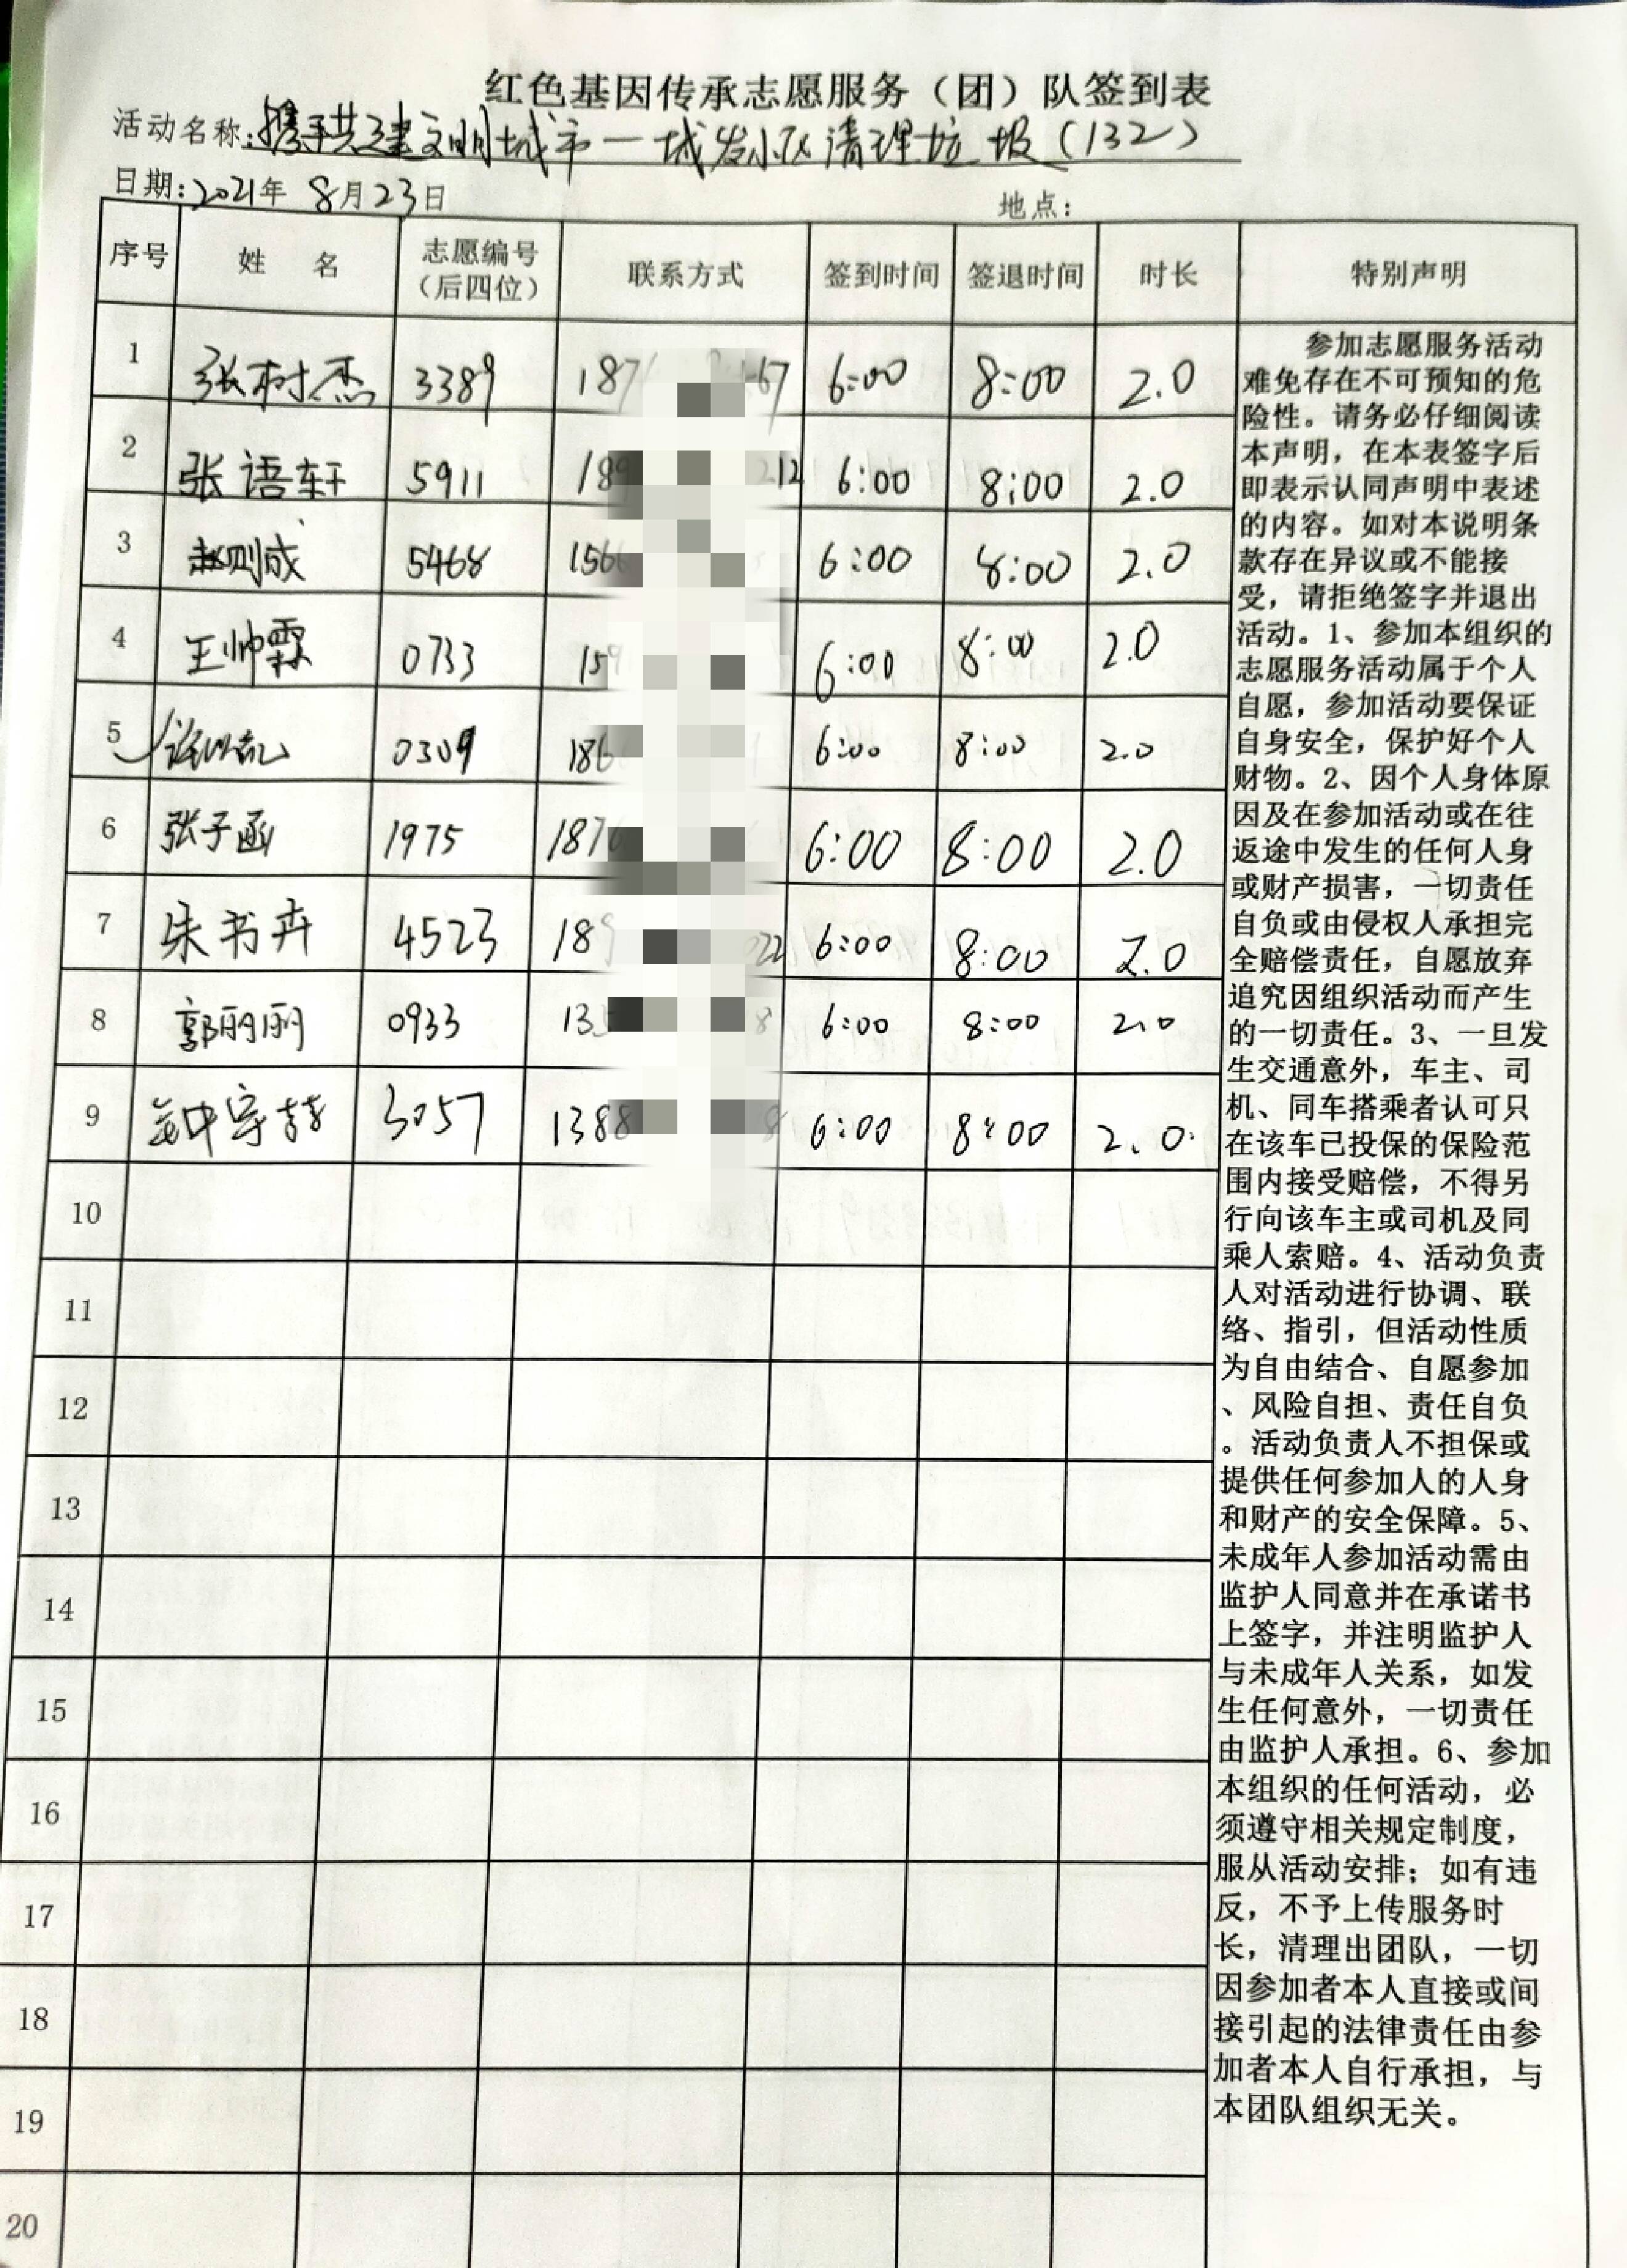 红色基因传承志愿服务（团）队签到表
活动名称:携手共建文明城市一城发小区清理垃圾(132)
日期:2021年 8月23日 地点:
序号 姓 名 志愿编号（后四位） 联系方式 签到时间 签退时间 时长 特别声明
1 张树杰 3389 187 67 6:00 8:00 2.0
2 张语轩 5911 189 212 6:00 8:00 2.0
3 赵则成 5468 156 6:00 8:00 2.0
4 王帅霖 0733 159 6:00 8:00 2.0
5 0309 186 6:00 8:00 2.0
6 张子函 1975 187 6:00 8:00 2.0
7 朱书卉 4523 189 022 6:00 8:00 2.0
8 郭丽丽 0933 135 8 6:00 8:00 2.0
9 3057 1388 8 6:00 8:00 2.0
10
11
12
13
14
15
16
17
18
19
20
参加志愿服务活动
难免存在不可预知的危
险性。请务必仔细阅读
本声明，在本表签字后
即表示认同声明中表述
的内容。如对本说明条
款存在异议或不能接
受，请拒绝签字并退出
活动。1、参加本组织的
志愿服务活动属于个人
自愿，参加活动要保证
自身安全，保护好个人
财物。2、因个人身体原
因及在参加活动或在往
返途中发生的任何人身
或财产损害，一切责任
自负或由侵权人承担完
全赔偿责任，自愿放弃
追究因组织活动而产生
的一切责任。3、一旦发
生交通意外，车主、司
机、同车搭乘者认可只
在该车已投保的保险范
围内接受赔偿，不得另
行向该车主或司机及同
乘人索赔。4、活动负责
人对活动进行协调、联
络、指引，但活动性质
为自由结合、自愿参加
、风险自担、责任自负
。活动负责人不担保或
提供任何参加人的人身
和财产的安全保障。5、
未成年人参加活动需由
监护人同意并在承诺书
上签字，并注明监护人
与未成年人关系，如发
生任何意外，一切责任
由监护人承担。6、参加
本组织的任何活动，必
须遵守相关规定制度，
服从活动安排；如有违
反，不予上传服务时
长，清理出团队，一切
因参加者本人直接或间
接引起的法律责任由参
加者本人自行承担，与
本团队组织无关。